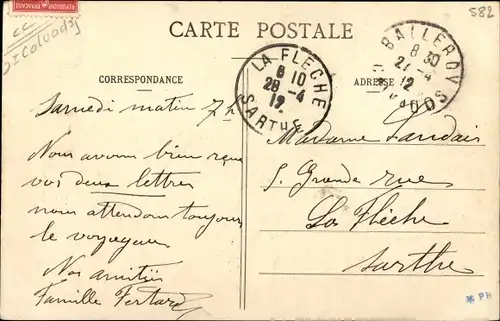 RÉPUBLIQUE FRANÇAISE
582
CC
CARTE POSTALE
CORRESPONDANCE
ADRESSE
LA FLÈCHE
8 10
28 - 4
12
SARTHE
BALLEROY
8 30
27 - 4
12
CALVADOS
Samedi matin 7h
Nous avons bien reçu
vos deux lettres
nous attendons toujours
le voyageur
Nos amitiés
Famille Fertard
Madame Landais
5. Grande rue
La Flèche
Sarthe
PH